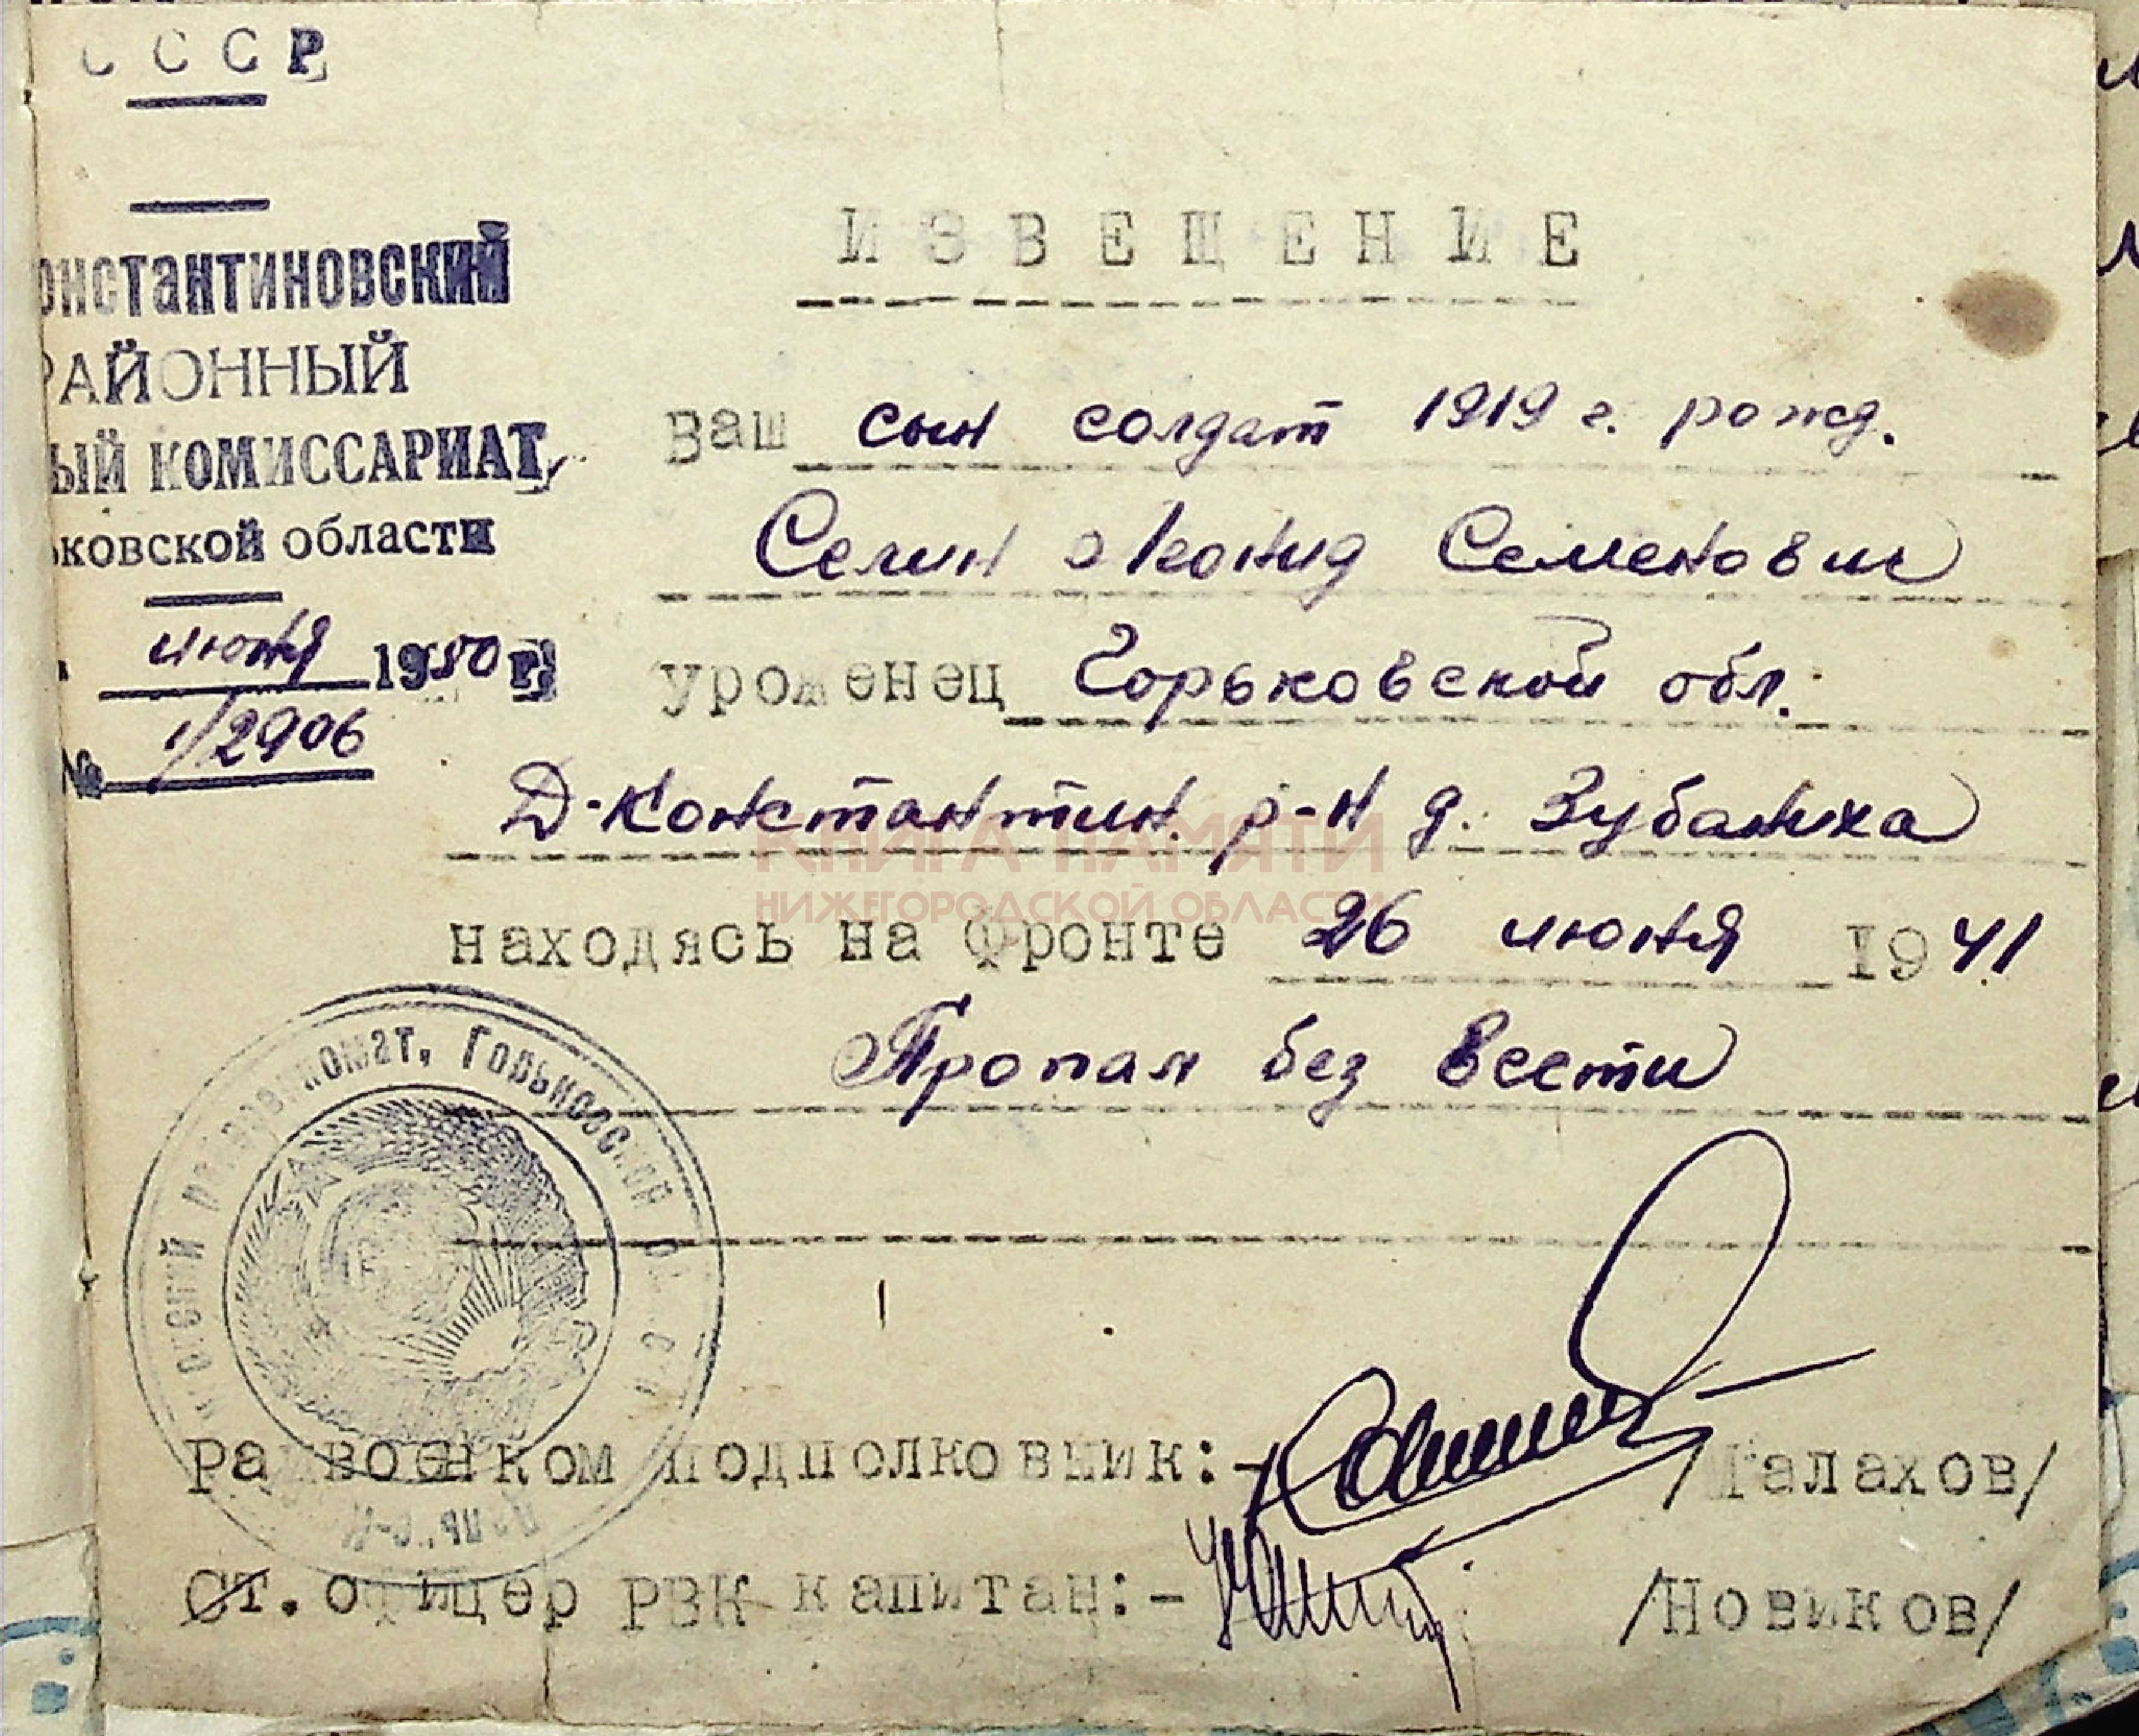 СССР
онстантиновский
РАЙОННЫЙ
ый КОМИССАРИАТ,
ьковской области
июня 1950 г.
№ 1/2906
ИЗВЕЩЕНИЕ
Ваш сын солдат 1919 г. рожд.
Селин Леонид Семенович
уроженец Горьковской обл.
Д-Константин. р-н д. Зубаниха
КНИГА ПАМЯТИ
НИЖЕГОРОДСКОЙ ОБЛАСТИ
находясь на фронте 26 июня 1941
Пропал без вести
Райвоенком подполковник:- /Галахов/
Ст. офицер РВК капитан:- /Новиков/